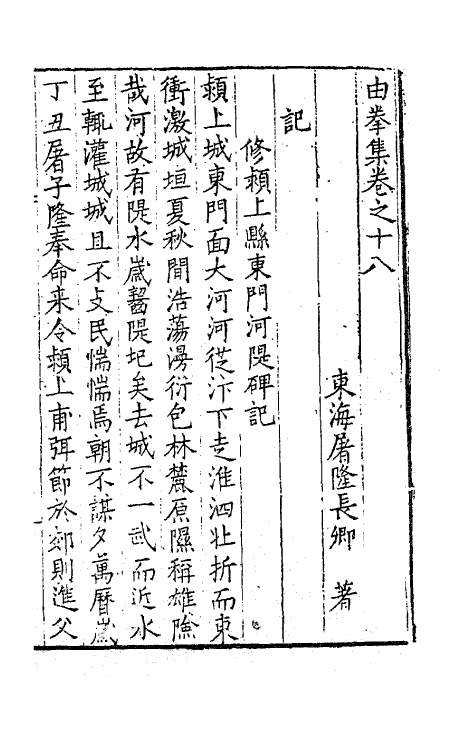 由拳集卷之十八
東海屠隆長卿　著
記
修頴上縣東門河隄碑記
頴上城東門面大河河從汴下走淮泗壯折而東
衝激城垣夏秋間浩蕩漫衍包林麓原隰稱雄險
哉河故有隄水歲齧隄圯矣去城不一武而近水
至輒灌城城且不支民惴惴焉朝不謀夕萬曆歲
丁丑屠子隆奉命来令頴上甫弭節於郊則進父